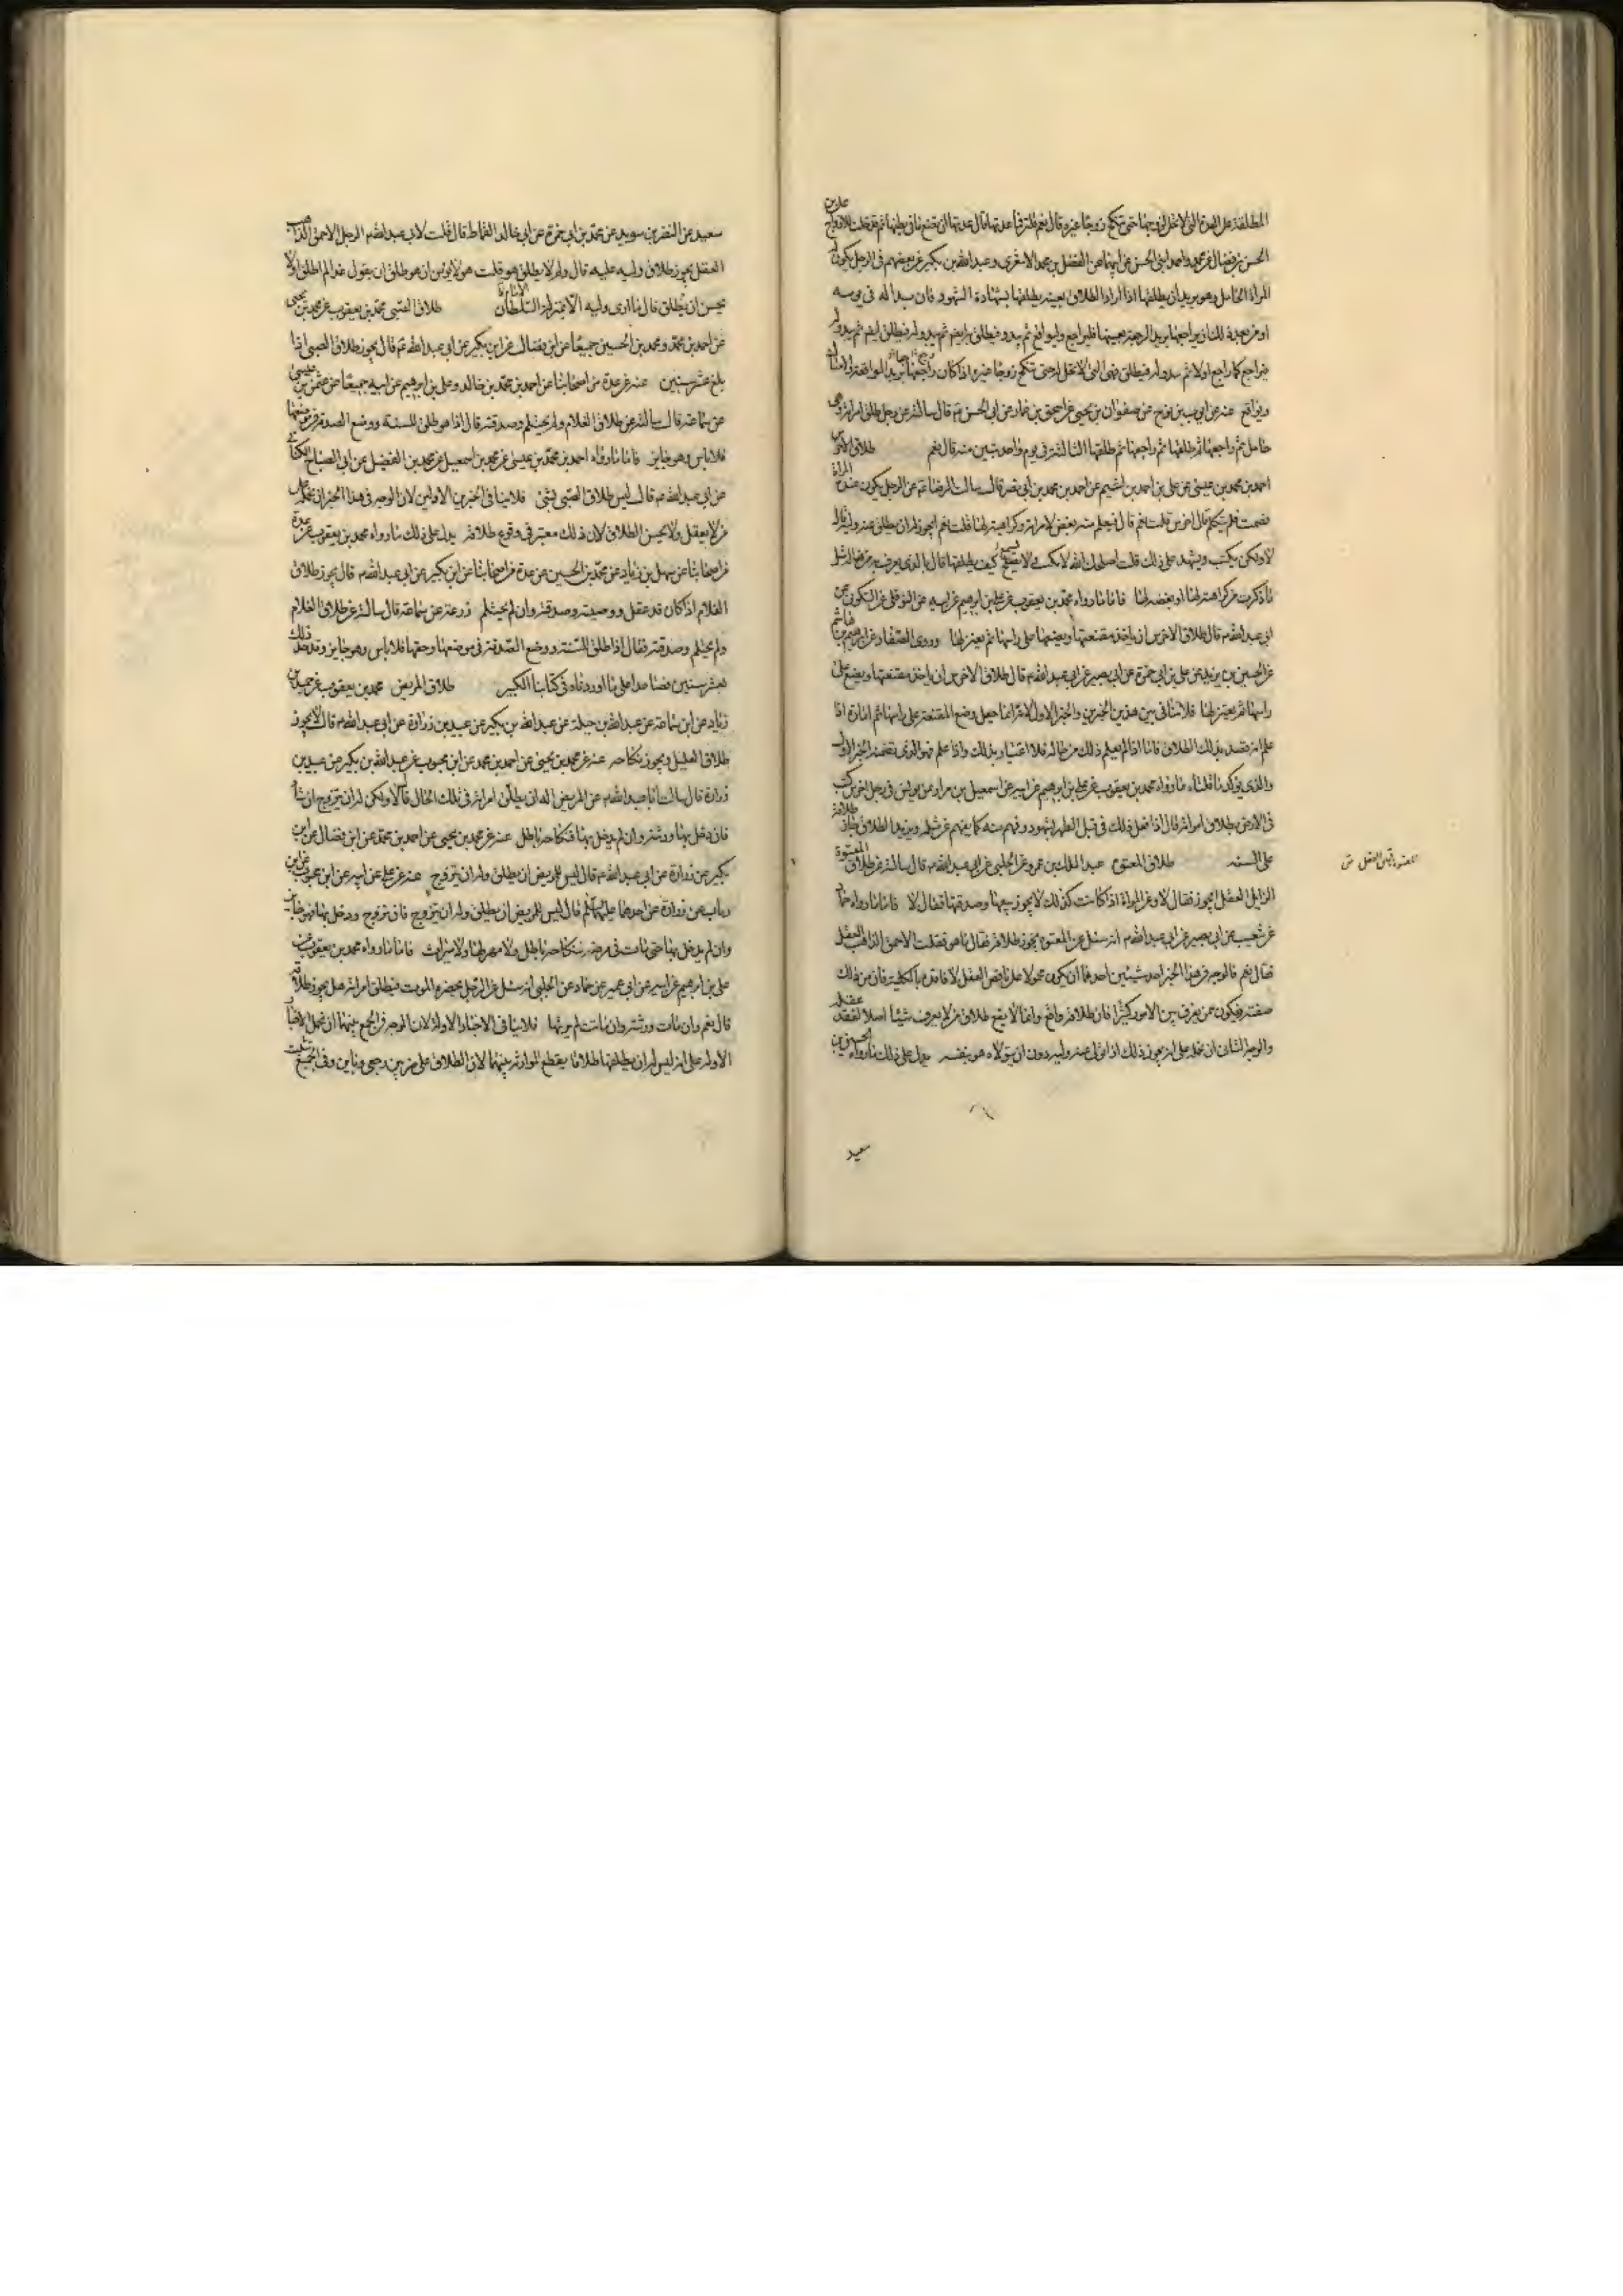 المطلقة على العدة التى لا تحل لزوجها حتى تنكح زوجا غيره قال نعم قلت فما عدتها قال عدتها ان تضع ما فى بطنها ثم قد حلت للازواج على بن
الحسن بن فضال عن محمد واحمد ابنى الحسن عن ابيهما عن الفضل بن محمد الاشعرى وعبد الله بن بكير عن بعضهم فى الرجل يكون له
المراة الحامل وهو يريد ان يطلقها اذا اراد الطلاق بعينه يطلقها بشهادة الشهود فان بدا له فى يومه
او من بعد ذلك ان يراجعها يريد الرجعة بعينها فليراجع وليواقع ثم يبدو فيطلق ايضا ثم يبدو له
فيراجع كما راجع اولا ثم يبدو له فيطلق فهى التى لا تحل له حتى تنكح زوجا غيره اذا كان راجعها يريد المواقعة والامساك
ويواقع عنه عن ايوب بن نوح عن صفوان بن يحيى عن اسحق بن عمار عن ابى الحسن ع قال سالته عن رجل طلق امراته وهى
حامل ثم راجعها ثم طلقها ثم راجعها ثم طلقها الثالثة فى يوم واحد تبين منه قال نعم طلاق الاخرس
احمد بن محمد بن عيسى عن على بن احمد بن اشيم عن احمد بن محمد بن ابى نصر قال سالت الرضا ع عن الرجل يكون عنده المراة
فصمت فلم يتكلم قال اخرس قلت نعم قال فيعلم منه بغض لامراته وكراهته لها قلت نعم ايجوز له ان يطلق عنه وليه قال
لا ولكن يكتب ويشهد على ذلك قلت اصلحك الله لا يكتب ولا يسمع كيف يطلقها قال بالذى يعرف به من فعاله مثل
ما ذكرت من كراهته لها او بغضه لها فاما ما رواه محمد بن يعقوب عن على بن ابرهيم عن ابيه عن النوفلى عن السكونى عن
ابى عبد الله ع قال طلاق الاخرس ان ياخذ مقنعتها ويضعها على راسها ثم يعتزلها وروى الصفار عن ابرهيم بن هاشم
عن الحسين بن يزيد عن على بن ابى حمزة عن ابى بصير عن ابى عبد الله ع قال طلاق الاخرس ان ياخذ مقنعتها ويضع على
راسها ثم يعتزلها فلا ينافى بين هذين الخبرين والخبر الاول لانه انما جعل وضع المقنعة على راسها ثم امارة اذا
علم انه قصد بذلك الطلاق فاما اذا لم يعلم ذلك من حاله فلا اعتبار بذلك واذا علم فهو الذى تضمنه الخبر الاول
والذى يؤكد ما قلناه ما رواه محمد بن يعقوب عن على بن ابرهيم عن ابيه عن اسمعيل بن مرار عن يونس فى رجل اخرس كتب
فى الارض بطلاق امراته قال اذا فعل ذلك فى قبل الطهر بشهود وفهم منه كما يفهم عن مثله ويريد الطلاق جاز طلاقه
على السنه طلاق المعتوه عبد الملك بن عمرو عن الحلبى عن ابى عبد الله ع قال سالته عن طلاق المعتوه
الزايل العقل ايجوز فقال لا وعن المراة اذا كانت كذلك لا يجوز بيعها وصدقتها فقال لا فاما ما رواه حماد
عن شعيب عن ابى بصير عن ابى عبد الله ع انه سئل عن المعتوه يجوز طلاقه فقال ما هو فقلت الاحمق الذاهب العقل
فقال نعم فالوجه فى هذا الخبر احد شيئين احدهما ان يكون محمولا على ناقص العقل لا فاقده بالكلية فان من ذلك
صفته فيكون ممن يفرق بين الامور كثيرا فان طلاقه واقع وانما لا يقع طلاق من لا يعرف شيئا اصلا لفقد عقله
والوجه الثانى ان نحمله على انه يجوز ذلك اذا تولى عنه وليه دون ان يتولاه هو بنفسه يدل على ذلك ما رواه الحسين بن
سعيد
المعتوه ناقص العقل ص
سعيد عن النضر بن سويد عن محمد بن ابى حمزة عن ابى خالد القماط قال قلت لابى عبد الله ع الرجل الاحمق الذاهب
العقل يجوز طلاق وليه عليه قال ولم لا يطلق هو قلت هو لا يؤمن ان هو طلق ان يقول غدا لم اطلق او لا
يحسن ان يطلق قال ما ارى وليه الا بمنزلة السلطان الامام ع طلاق الصبى محمد بن يعقوب عن محمد بن يحيى
عن احمد بن محمد ومحمد بن الحسين جميعا عن ابن فضال عن ابن بكير عن ابى عبد الله ع قال يجوز طلاق الصبى اذا
بلغ عشر سنين عنه عن عدة من اصحابنا عن احمد بن محمد بن خالد وعلى بن ابرهيم عن ابيه جميعا عن عثمن بن عيسى
عن سماعة قال سالته عن طلاق الغلام ولم يحتلم وصدقته قال اذا هو طلق للسنة ووضع الصدقة فى موضعها
فلا باس وهو جايز فاما ما رواه احمد بن محمد بن عيسى عن محمد بن اسمعيل عن محمد بن الفضيل عن ابى الصباح الكنانى
عن ابى عبد الله ع قال ليس طلاق الصبى بشئ فلا ينافى الخبرين الاولين لان الوجه فى هذا الخبر ان نحمله على
من لا يعقل ولا يحسن الطلاق لان ذلك معتبر فى وقوع طلاقه يدل على ذلك ما رواه محمد بن يعقوب عن عدة
من اصحابنا عن سهل بن زياد عن محمد بن الحسين عن عدة من اصحابنا عن ابن بكير عن ابى عبد الله ع قال يجوز طلاق
الغلام اذا كان قد عقل ووصيته وصدقته وان لم يحتلم زرعة عن سماعة قال سالته عن طلاق الغلام
ولم يحتلم وصدقته فقال اذا طلق للسنة ووضع الصدقة فى موضعها وحقها فلا باس وهو جايز وقد حد ذلك
بعشر سنين فصاعدا على ما اوردناه فى كتابنا الكبير طلاق المريض محمد بن يعقوب عن حميد بن
زياد عن ابن سماعة عن عبد الله بن جبلة عن عبد الله بن بكير عن عبيد بن زرارة عن ابى عبد الله ع قال لا يجوز
طلاق العليل ويجوز نكاحه عنه عن محمد بن يحيى عن احمد بن محمد عن ابن محبوب عن عبد الله بن بكير عن عبيد بن
زرارة قال سالت ابا عبد الله ع عن المريض اله ان يطلق امراته فى تلك الحال قال لا ولكن له ان يتزوج ان شاء
فان دخل بها ورثته وان لم يدخل بها فنكاحه باطل عنه عن محمد بن يحيى عن احمد بن محمد عن ابن فضال عن ابن
بكير عن زرارة عن ابى عبد الله ع قال ليس للمريض ان يطلق وله ان يتزوج عنه عن على عن ابيه عن ابن محبوب عن ابن
رباب عن زرارة عن احدهما عليهما السلم قال ليس للمريض ان يطلق وله ان يتزوج فان تزوج ودخل بها فهو جايز
وان لم يدخل بها حتى مات فى مرضه فنكاحه باطل ولا مهر لها ولا ميراث فاما ما رواه محمد بن يعقوب عن
على بن ابرهيم عن ابيه عن ابن ابى عمير عن حماد عن الحلبى انه سئل عن الرجل يحضره الموت فيطلق امراته هل يجوز طلاقه
قال نعم وان مات ورثته وان ماتت لم يرثها فلا ينافى الاخبار الاولة لان الوجه فى الجمع بينها ان نحمل الاخبار
الاولة على انه ليس له ان يطلقها طلاقا يقطع الموارثة بينهما لان الطلاق على ضربين رجعى وباين وفى الجميع تثبت